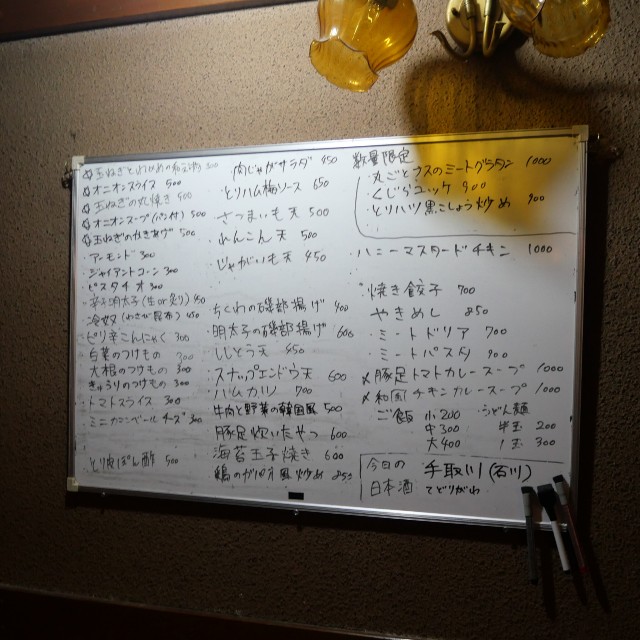 ☆オニオンスライス 500
☆玉ねぎの丸焼き 500
☆オニオンスープ(パン付) 500
☆玉ねぎのかきあげ 500
アーモンド 300
ジャイアントコーン 300
ピスタチオ 300
辛子明太子(生or炙り) 450
冷奴(わさび昆布) 450
ピリ辛こんにゃく 300
白菜のつけもの 300
大根のつけもの 300
きゅうりのつけもの 300
トマトスライス 300
ミニカマンベールチーズ 300
とり皮ぽん酢 500
肉じゃがサラダ 450
とりハム梅ソース 650
さつまいも天 500
れんこん天 500
じゃがいも天 450
ちくわの磯部揚げ 400
明太子の磯部揚げ 600
ししとう天 450
スナップエンドウ天 600
ハムカツ 700
牛肉と野菜の韓国風 500
豚足炊いたやつ 600
海苔玉子焼き 600
鶏のガリバタ風炒め 850
数量限定
丸ごとナスのミートグラタン 1000
くじらユッケ 900
とりハツ黒こしょう炒め 900
ハニーマスタードチキン 1000
焼き餃子 700
やきめし 850
ミートドリア 900
ミートパスタ 900
豚足トマトカレースープ 1000
和風チキンカレースープ 1000
ご飯 小200 うどん麺
中300 半玉 200
大400 1玉 300
今日の 手取川(石川)
日本酒 てどりがわ